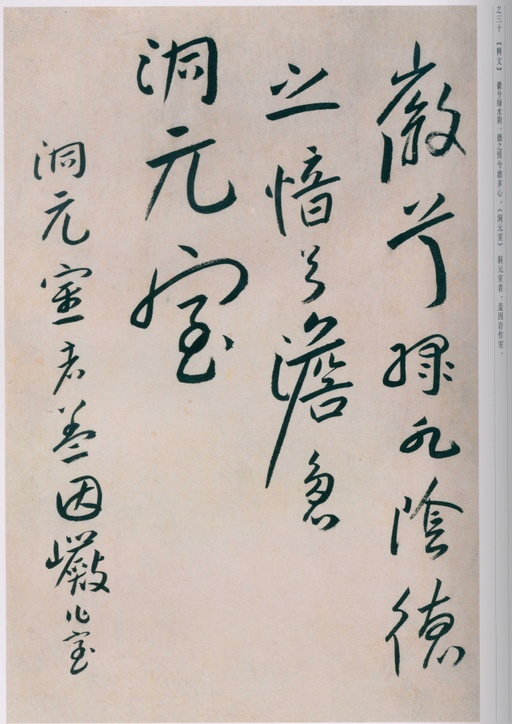 之三十 【释文】 徽兮绿水阴,德之愔兮澹多心。《洞元室》 洞元室者,盖因岩作室,
徽兮緑水陰德
之愔兮澹多心
洞元室
洞元室者蓋因巖作室